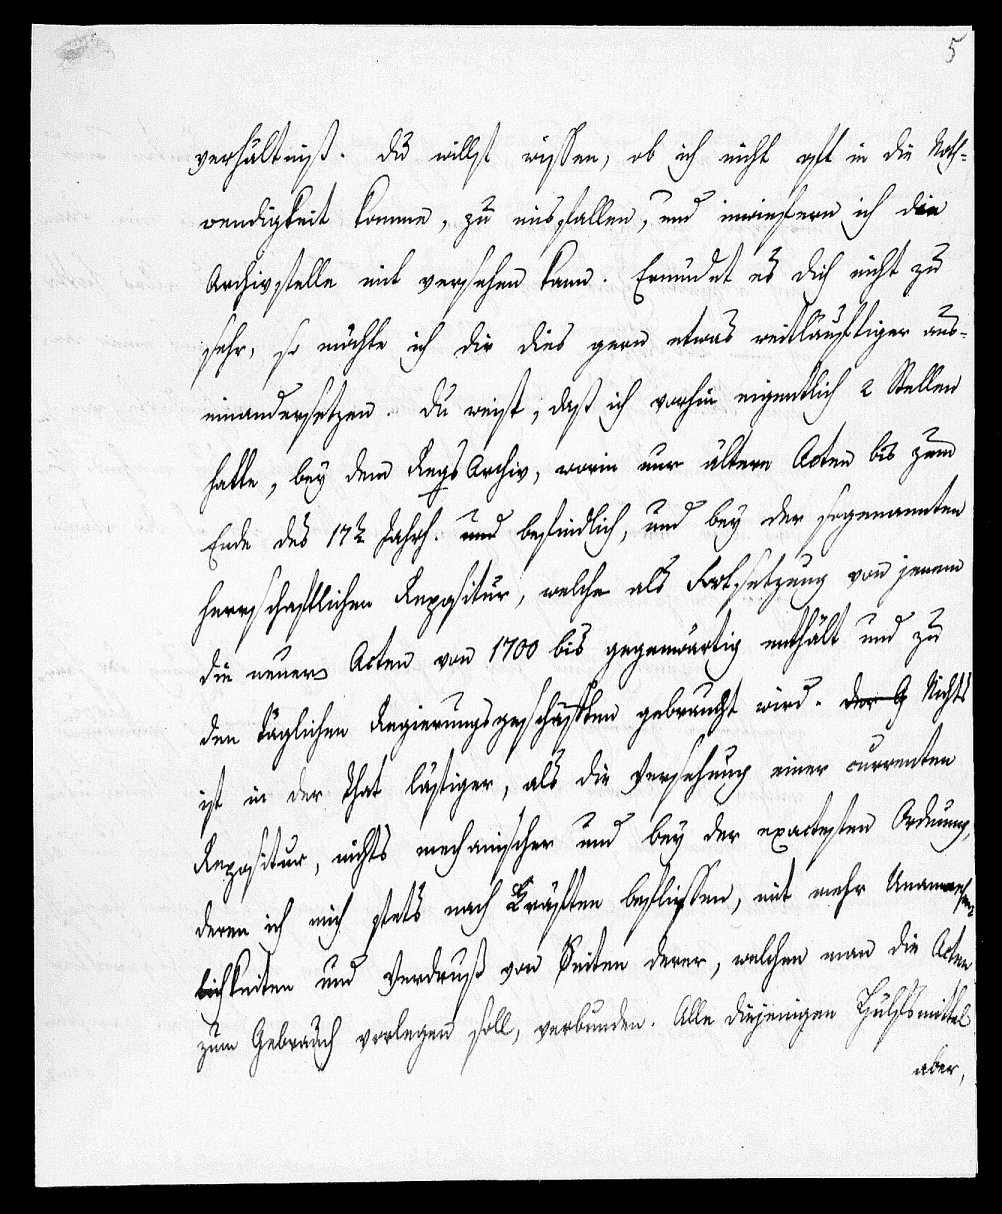 5
verhältniß. Du willst wissen, ob ich nicht oft in die Noth-
wendigkeit komme, zu missfallen, und inwiefern ich die
Archivstelle mit versehen kann. Ermüdet es dich nicht zu
sehr, so möchte ich dir dies gern etwas weitläuftiger aus-
einandersetzen. Du weist, dass ich vorhin eigentlich 2 Stellen
hatte, bey dem Regs Archiv, worin nur ältere Acten bis zum
Ende des 17t Jahrh. und befindlich, und bey der sogenannten
herrschaftlichen Repositur, welche als Fortsetzung von jenem
die neuern Acten von 1700 bis gegenwärtig enthält und zu
den täglichen Regierungsgeschäften gebraucht wird. der G Nichts
ist in der That lästiger, als die Versehung einer currenten
Repositur, nichts mechanischer und bey der exactesten Ordnung,
deren ich mich stets nach Kräften beflissen, mit mehr Unannehm-
lichkeiten und Verdruß von Seiten derer, welchen man die Acten
zum Gebrauch vorlegen soll, verbunden. Alle diejenigen Hülfsmittel
aber,